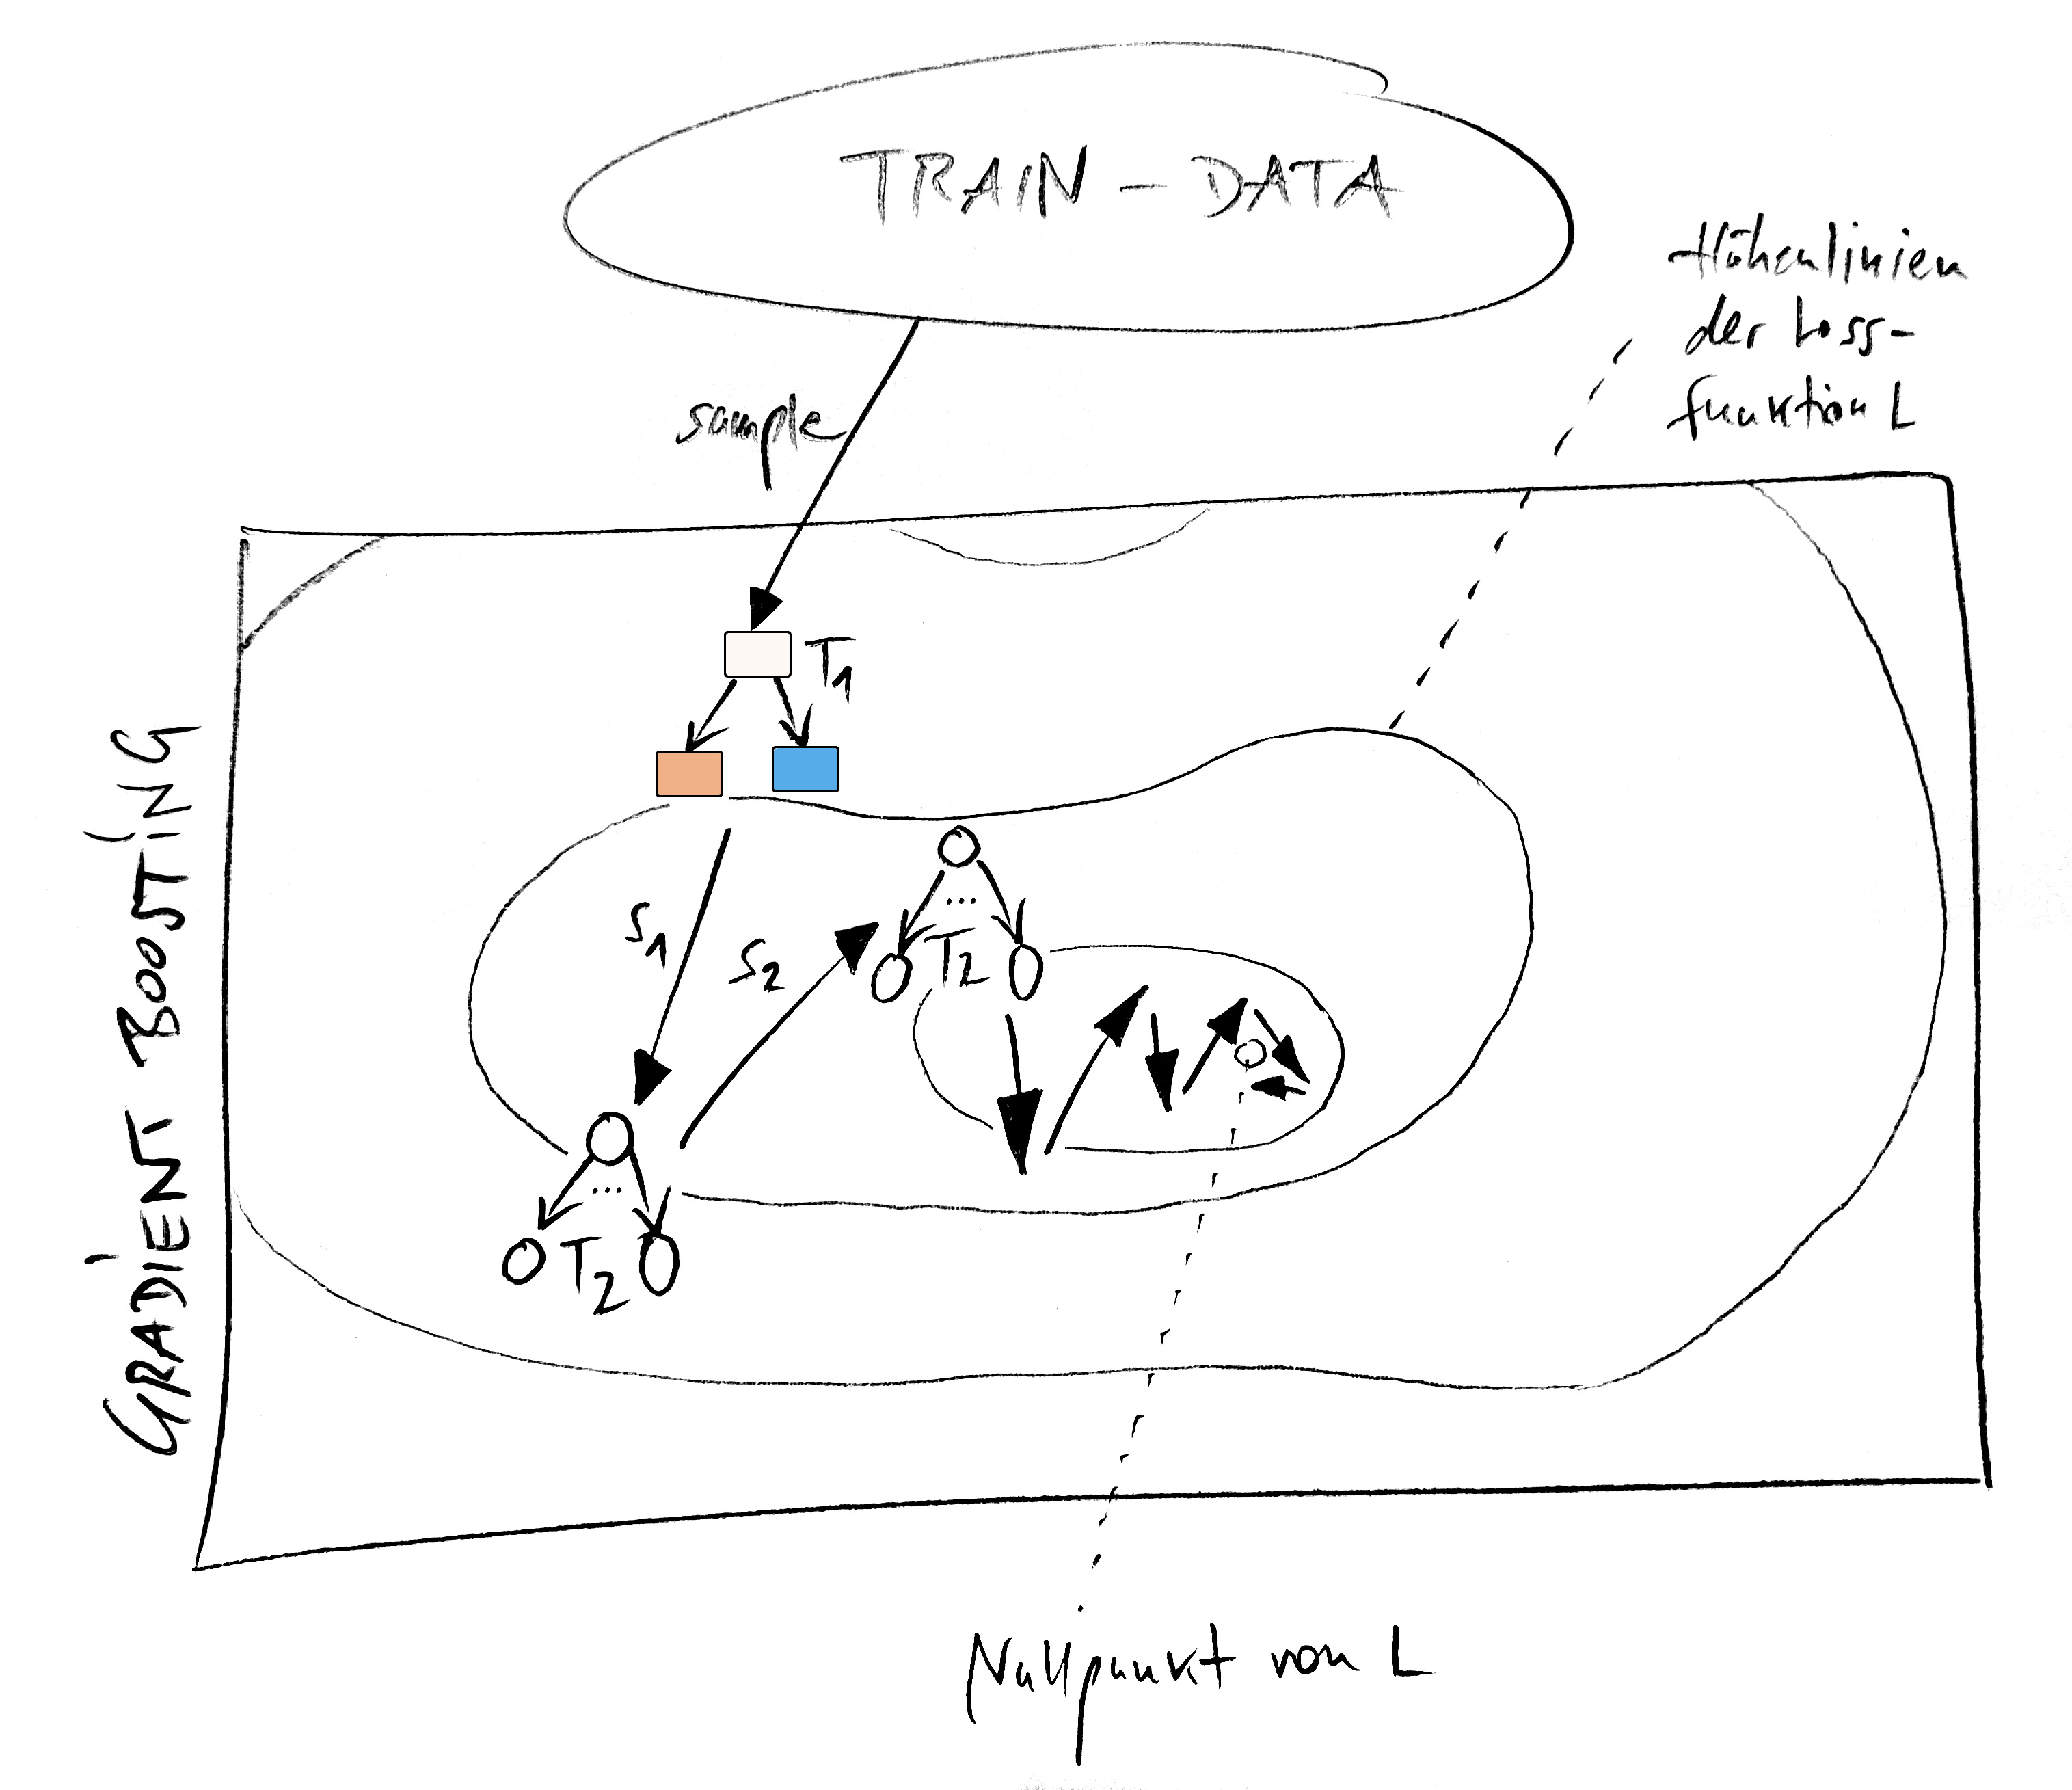 TRAIN - DATA
Höhenlinien
der Loss-
funktion L
sample
T1
GRADIENT BOOSTING
S1
S2
...
T2
...
T2
Nullpunkt von L